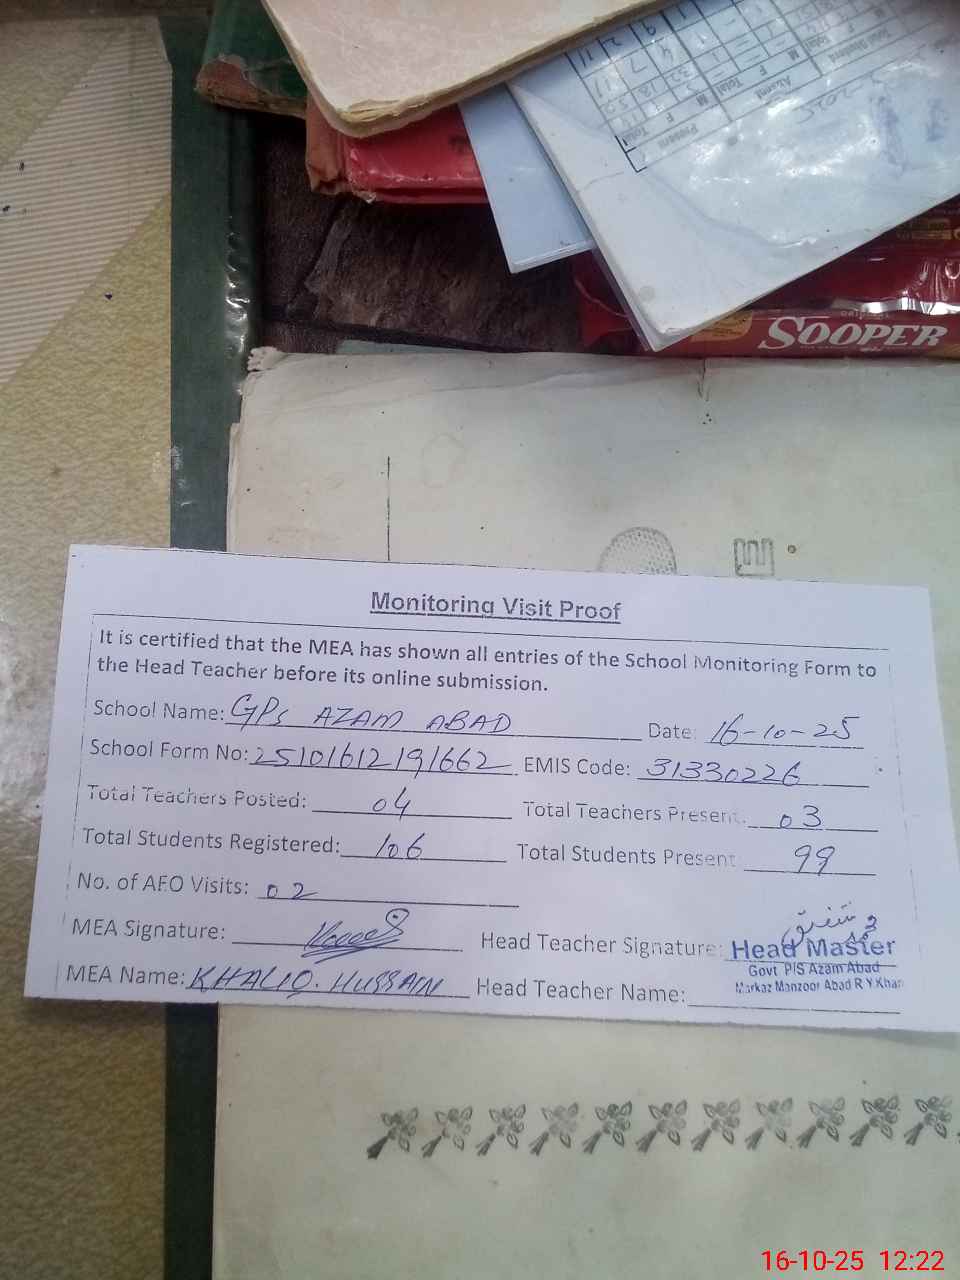 SOOPER
Monitoring Visit Proof
It is certified that the MEA has shown all entries of the School Monitoring Form to
the Head Teacher before its online submission.
School Name: GPS AZAM ABAD Date: 16-10-25
School Form No: 25101612191662 EMIS Code: 31330226
Total Teachers Posted: 04 Total Teachers Present: 03
Total Students Registered: 106 Total Students Present 99
No. of AEO Visits: 02
MEA Signature: Head Teacher Signature: Head Master
Govt P/S Azam Abad
Markaz Manzoor Abad R Y Khan
MEA Name: KHALIQ. HUSSAIN Head Teacher Name:
16-10-25 12:22